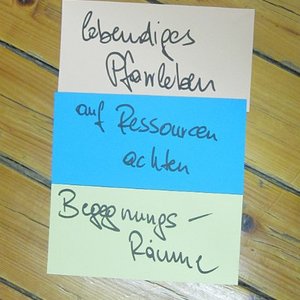 lebendiges
Pfarrleben
auf Ressourcen
achten
Begegnungs-
Räume